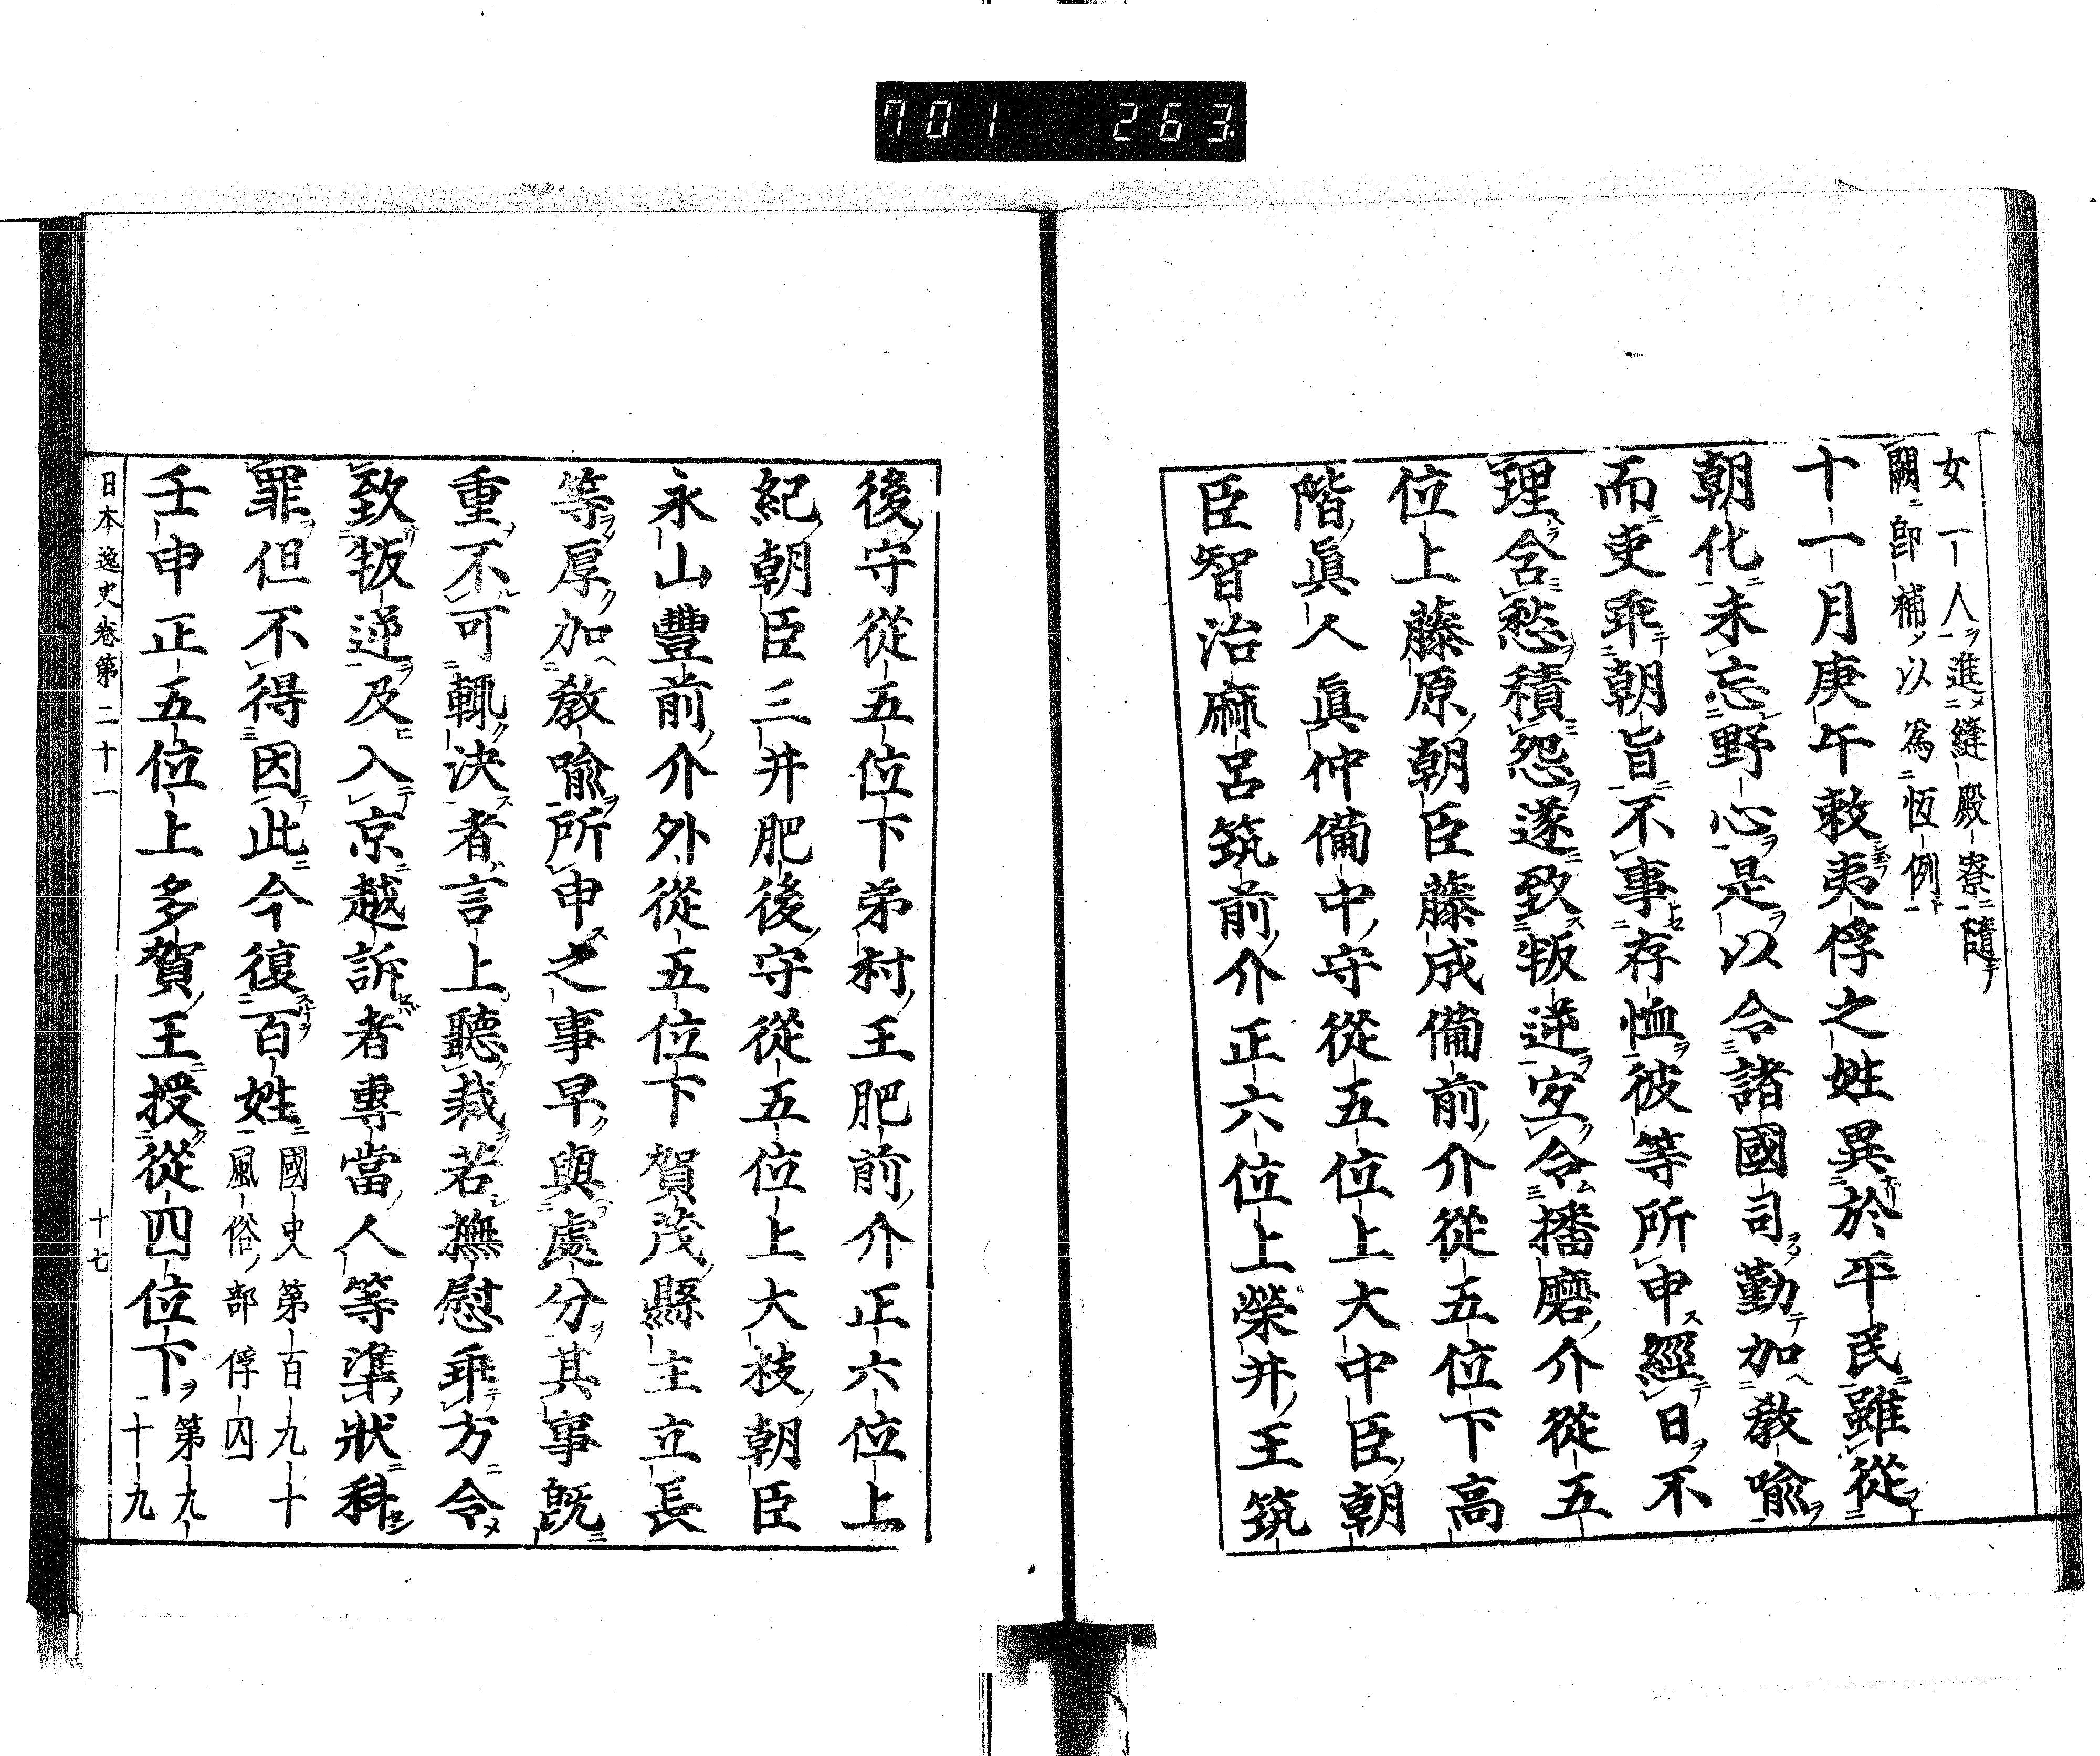 701 263
女一人進縫殿寮隨
闕即補以爲恆例
十一月庚午敕夷俘之姓異於平民雖從
朝化未忘野心是以令諸國司勤加敎喩
而吏乖朝旨不事存恤彼等所申經日不
理含愁積怨遂致叛逆宜令播磨介從五
位上藤原朝臣藤成備前介從五位下高
階眞人眞仲備中守從五位上大中臣朝
臣智治麻呂筑前介正六位上榮井王筑
後守從五位下弟村王肥前介正六位上
紀朝臣三井肥後守從五位上大枝朝臣
永山豐前介外從五位下賀茂縣主立長
等厚加敎喩所申之事早與處分其事旣
重不可輒決者言上聽裁若撫慰乖方令
致叛逆及入京越訴者專當人等準狀科
罪但不得因此今復百姓國史第百九十
風俗部俘囚
壬申正五位上多賀王授從四位下第九
十九
日本逸史卷第二十一 十七